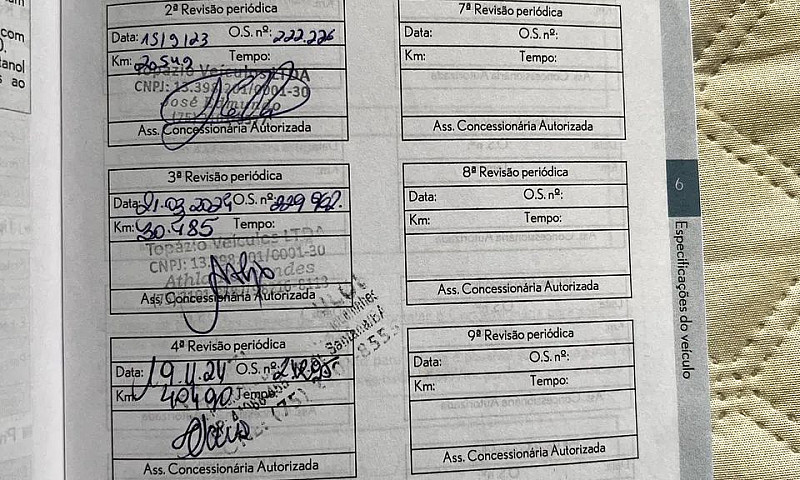 com
tanol
ao
2ª Revisão periódica
Data: 15/9/23 O.S. nº: 222.226
Km: 20542 Tempo:
Topázio Veículos LTDA
CNPJ: 13.398.201/0001-30
José Edmundo
Ass. Concessionária Autorizada
3ª Revisão periódica
Data: 21.03.2024 O.S. nº:
Km: 30.485 Tempo:
Topázio Veículos LTDA
CNPJ: 13.398.201/0001-30
Ass. Concessionária Autorizada
4ª Revisão periódica
Data: 19.11.24 O.S. nº:
Km: 40490 Tempo:
(75)
Ass. Concessionária Autorizada
7ª Revisão periódica
Data: O.S. nº:
Km: Tempo:
Ass. Concessionária Autorizada
8ª Revisão periódica
Data: O.S. nº:
Km: Tempo:
Ass. Concessionária Autorizada
9ª Revisão periódica
Data: O.S. nº:
Km: Tempo:
Ass. Concessionária Autorizada
6
Especificações do veículo